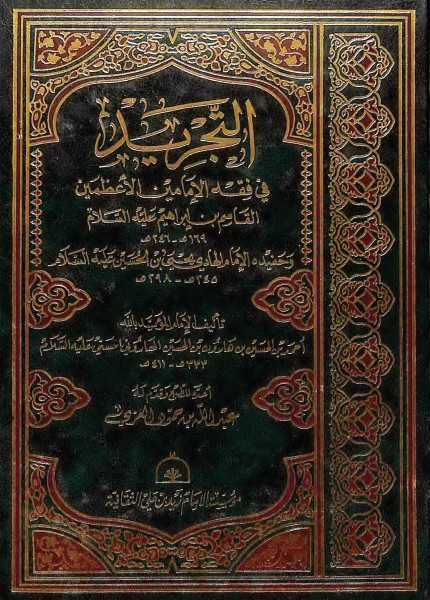 التجريد
في فقه الإمامين الأعظمين
القاسم بن إبراهيم عليه السلام
١٦٩هـ - ٢٤٦هـ
وحفيده الإمام الهادي يحيى بن الحسين عليه السلام
٢٤٥هـ - ٢٩٨هـ
تأليف الإمام المؤيد بالله
أحمد بن الحسين بن هارون بن الحسين الهاروني الحسني عليه السلام
٣٣٣هـ - ٤١١هـ
أعده للصف وقدم له
عبد الله بن حمود العزي
مؤسسة الإمام زيد بن علي الثقافية